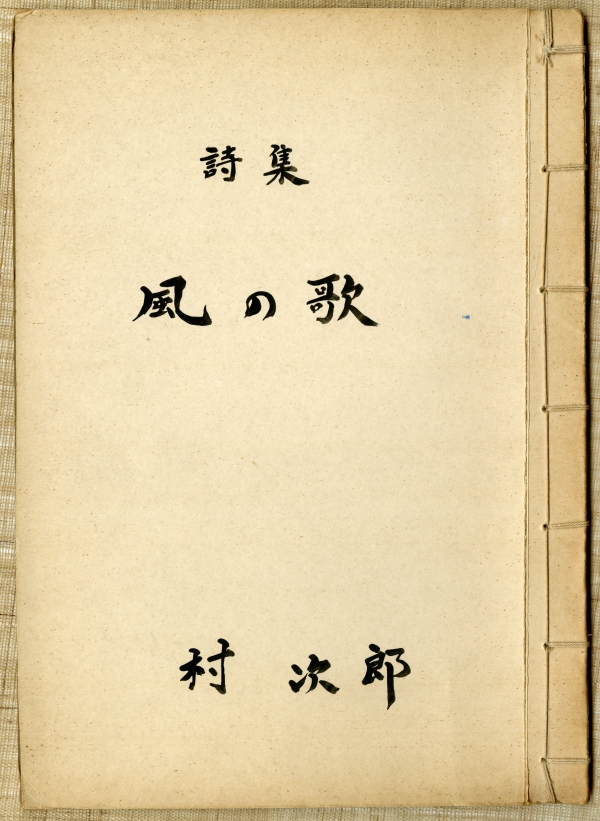 詩集
風の歌
村 次郎